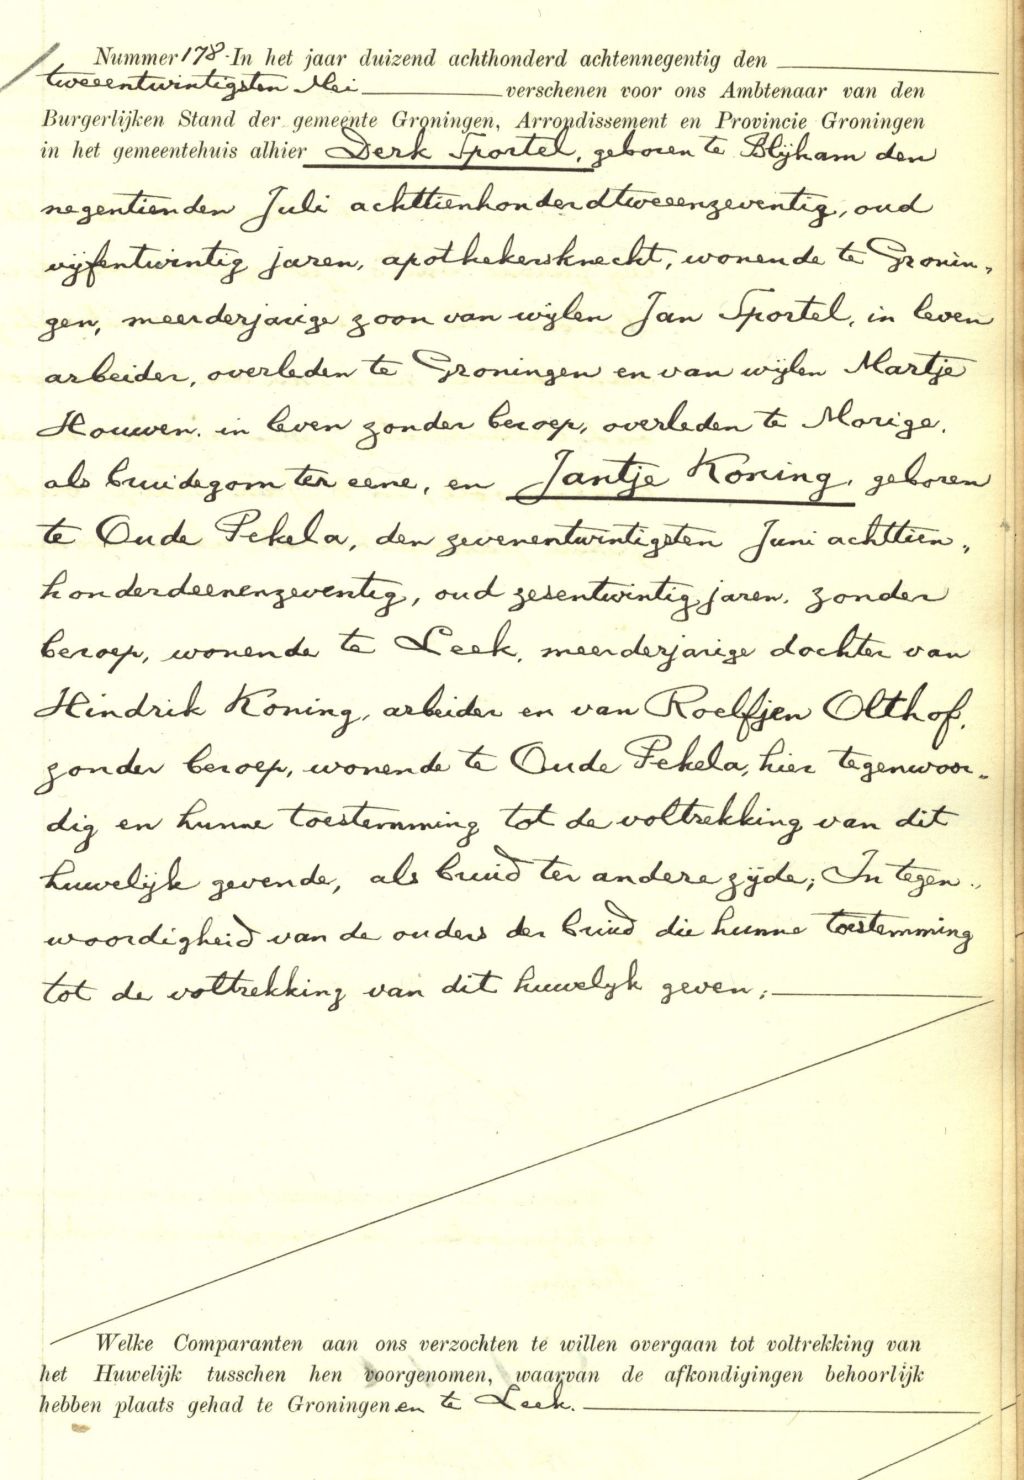 Nummer 178 In het jaar duizend achthonderd achtennegentig den
tweeentwintigsten Mei verschenen voor ons Ambtenaar van den
Burgerlijken Stand der gemeente Groningen, Arrondissement en Provincie Groningen
in het gemeentehuis alhier Derk Sportel, geboren te Blijham den
negentienden Juli achttienhonderdtweeenzeventig, oud
vijfentwintig jaren, apothekersknecht, wonende te Gronin„
gen, meerderjarige zoon van wijlen Jan Sportel, in leven
arbeider, overleden te Groningen en van wijlen Martje
Houwen, in leven zonder beroep, overleden te Morige,
als bruidegom ter eene, en Jantje Koning, geboren
te Oude Pekela, den zevenentwintigsten Juni achttien„
honderdeenenzeventig, oud zesentwintig jaren, zonder
beroep, wonende te Leek, meerderjarige dochter van
Hindrik Koning, arbeider en van Roelfjen Olthof,
zonder beroep, wonende te Oude Pekela, hier tegenwoor„
dig en hunne toestemming tot de voltrekking van dit
huwelijk gevende, als bruid ter andere zijde; In tegen„
woordigheid van de ouders der bruid die hunne toestemming
tot de voltrekking van dit huwelijk geven;
Welke Comparanten aan ons verzochten te willen overgaan tot voltrekking van
het Huwelijk tusschen hen voorgenomen, waarvan de afkondigingen behoorlijk
hebben plaats gehad te Groningen en te Leek.